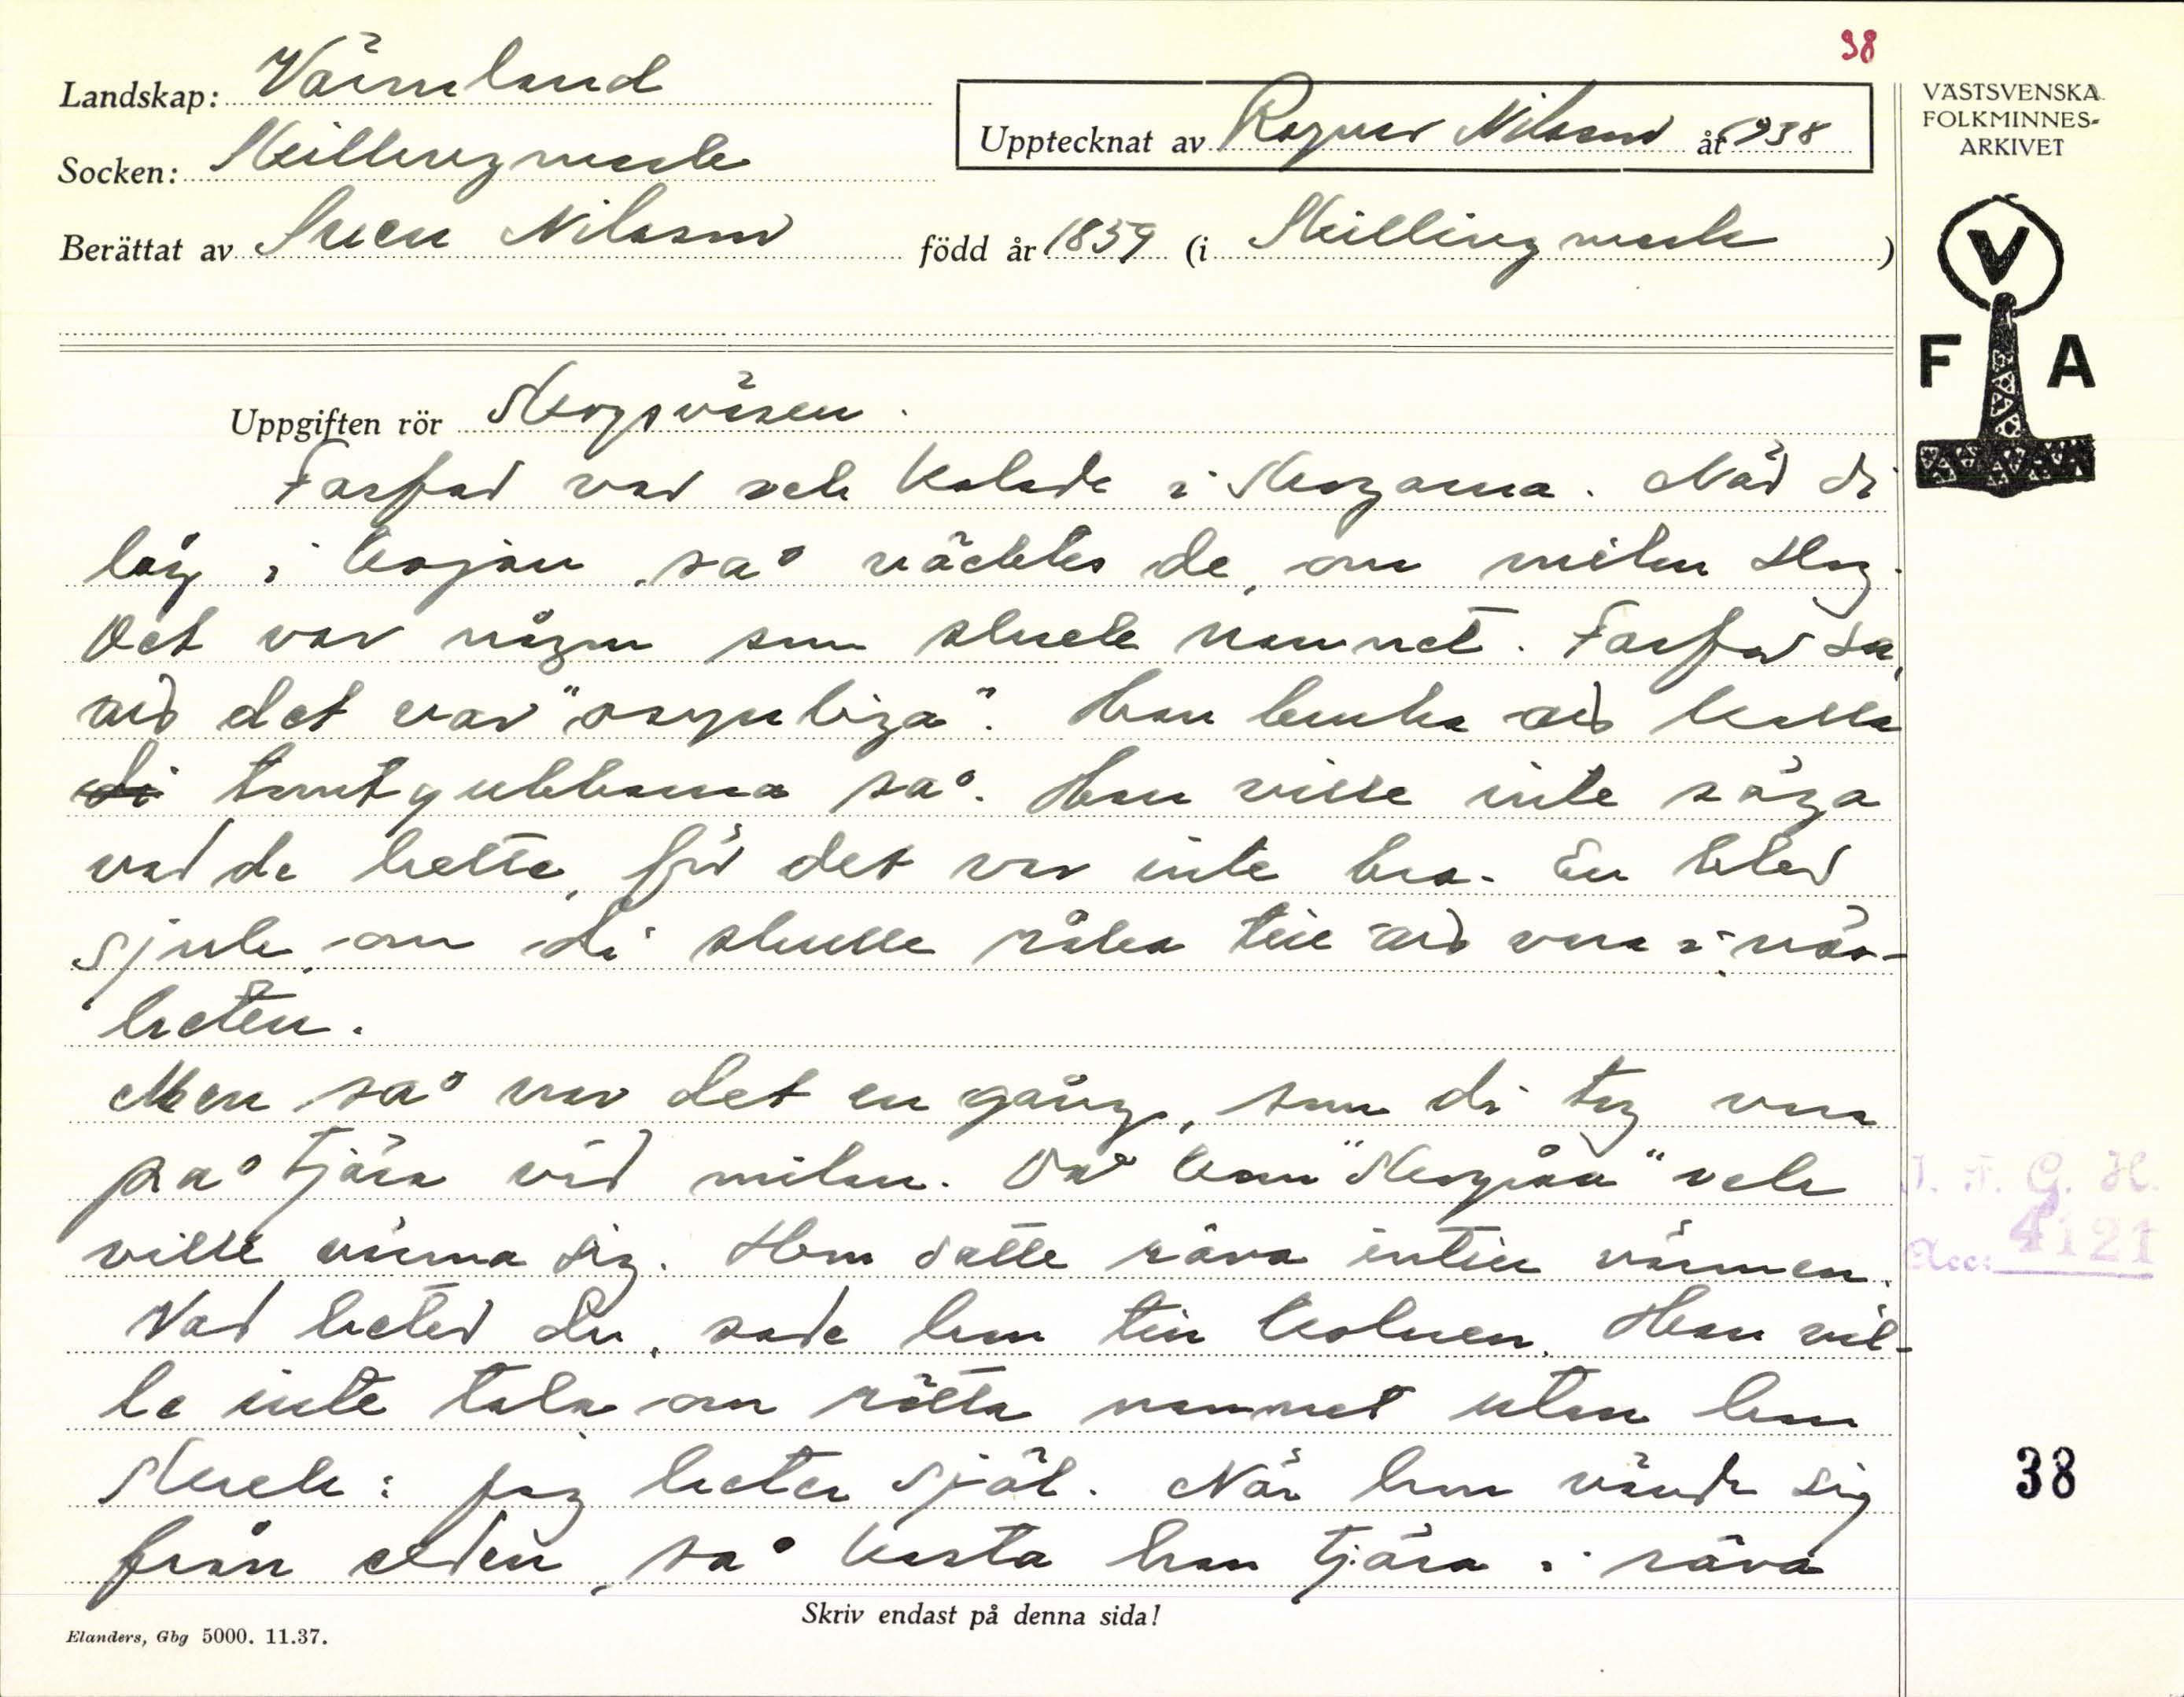 98
Landskap: Värmland
Socken: Skillingmark
Upptecknat av Ragnar Nilsson år 1938
Berättat av Sven Nilsson född år 1859 (i Skillingmark )
VÄSTSVENSKA
FOLKMINNES-
ARKIVET
V
F A
Uppgiften rör Skogsväsen.
Farfar var och kolade i skogarna. När di
låg i kojan så väcktes de, om milan slog.
Det var någon som skrek namnet. Farfar sa,
att det var "osynliga". Han bruka att kalla
di tomtgubbarna så. Han ville inte säga
vad de hette, för det var inte bra. En blev
sjuk, om di skulle råka till att vara i när-
heten.
Men så var det en gång, som di tog vara
på tjära vid milan. Då kom "Skogsråa" och
ville värma sig. Hon satte röva intill värmen.
Vad heter du, sade hon till kolaren. Han vil-
le inte tala om rätta namnet utan han
skrek: jag heter Själ. När hon vände sig
från elden, så kasta han tjära i röva
I. F. G. H.
Acc: 4121
38
Skriv endast på denna sida!
Elanders, Gbg 5000. 11.37.